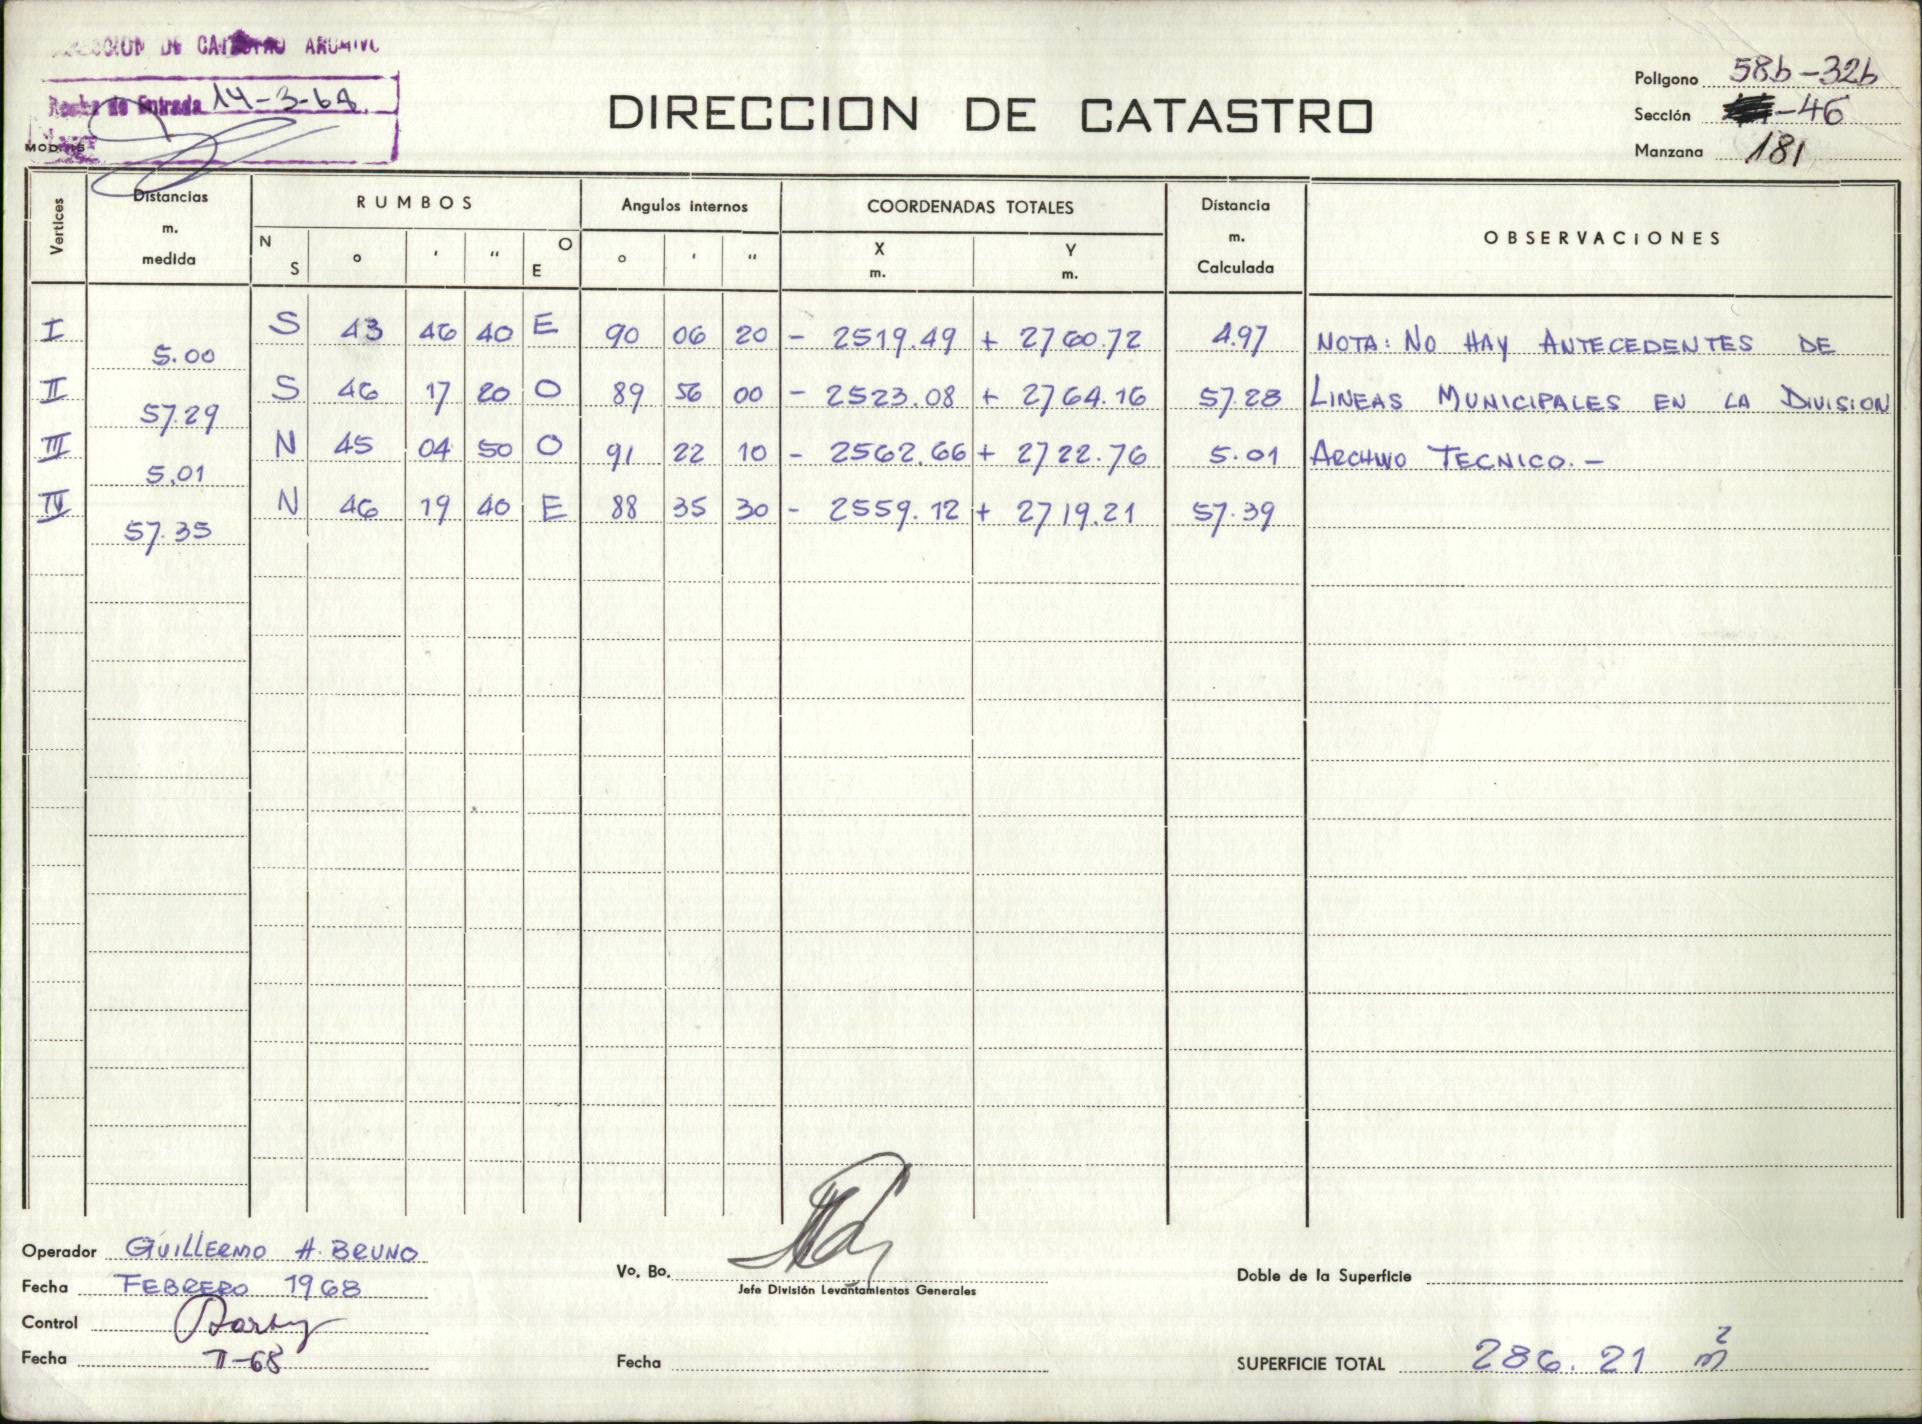 DIRECCION DE CATASTRO ARCHIVO
Fecha de Entrada 14-3-68.
MOD. 115
DIRECCION DE CATASTRO
Poligono 58b-32b
Sección -46
Manzana 181
Vertices Distancias m. medida RUMBOS Angulos internos COORDENADAS TOTALES Distancia m. Calculada OBSERVACIONES
N S ° ' " O E ° ' " X m. Y m.
I 5.00 S 43 46 40 E 90 06 20 - 2519.49 + 2760.72 4.97 NOTA: NO HAY ANTECEDENTES DE
II 57.29 S 46 17 20 O 89 56 00 - 2523.08 + 2764.16 57.28 LINEAS MUNICIPALES EN LA DIVISION
III 5.01 N 45 04 50 O 91 22 10 - 2562.66 + 2722.76 5.01 ARCHIVO TECNICO.-
IV 57.35 N 46 19 40 E 88 35 30 - 2559.12 + 2719.21 57.39
Operador GUILLERMO A. BRUNO
Fecha FEBRERO 1968
Control
Fecha II-68
Vo. Bo.
Jefe División Levantamientos Generales
Fecha
Doble de la Superficie
SUPERFICIE TOTAL 286.21 m²